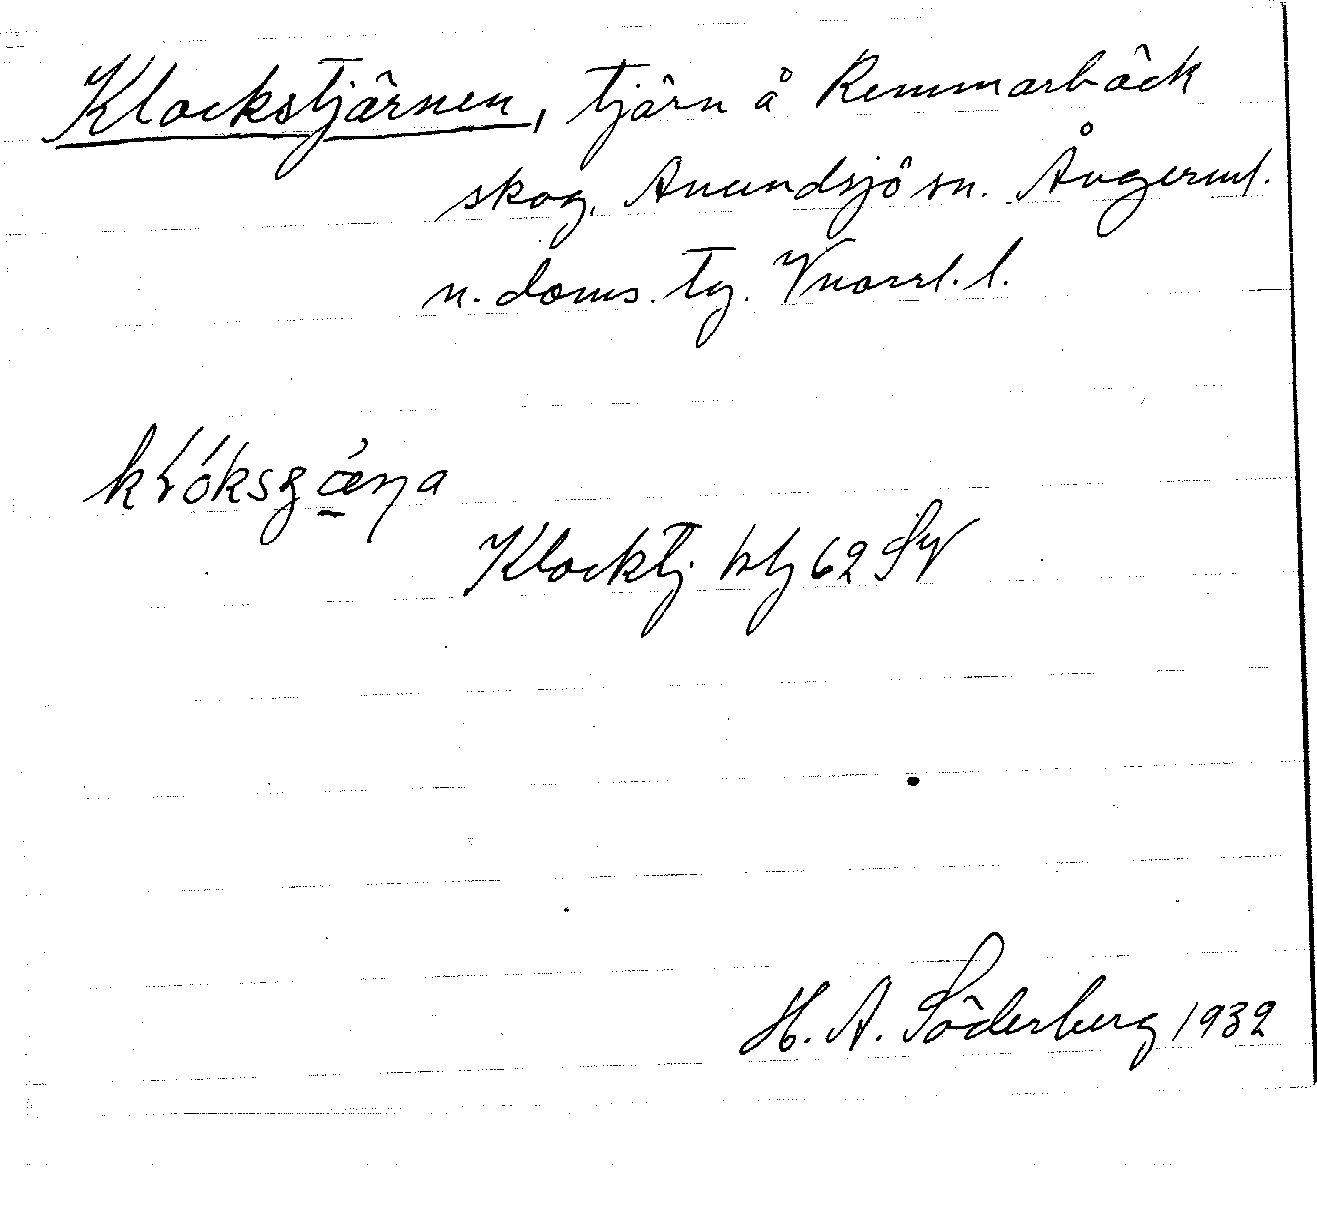 Klockstjärnen, tjärn å Remmarbäck
skog, Anundsjö sn. Ångerml.
n. doms. tg. Vnorrl. l.
Klocktj. bl 62 SV
H. A. Söderberg 1932